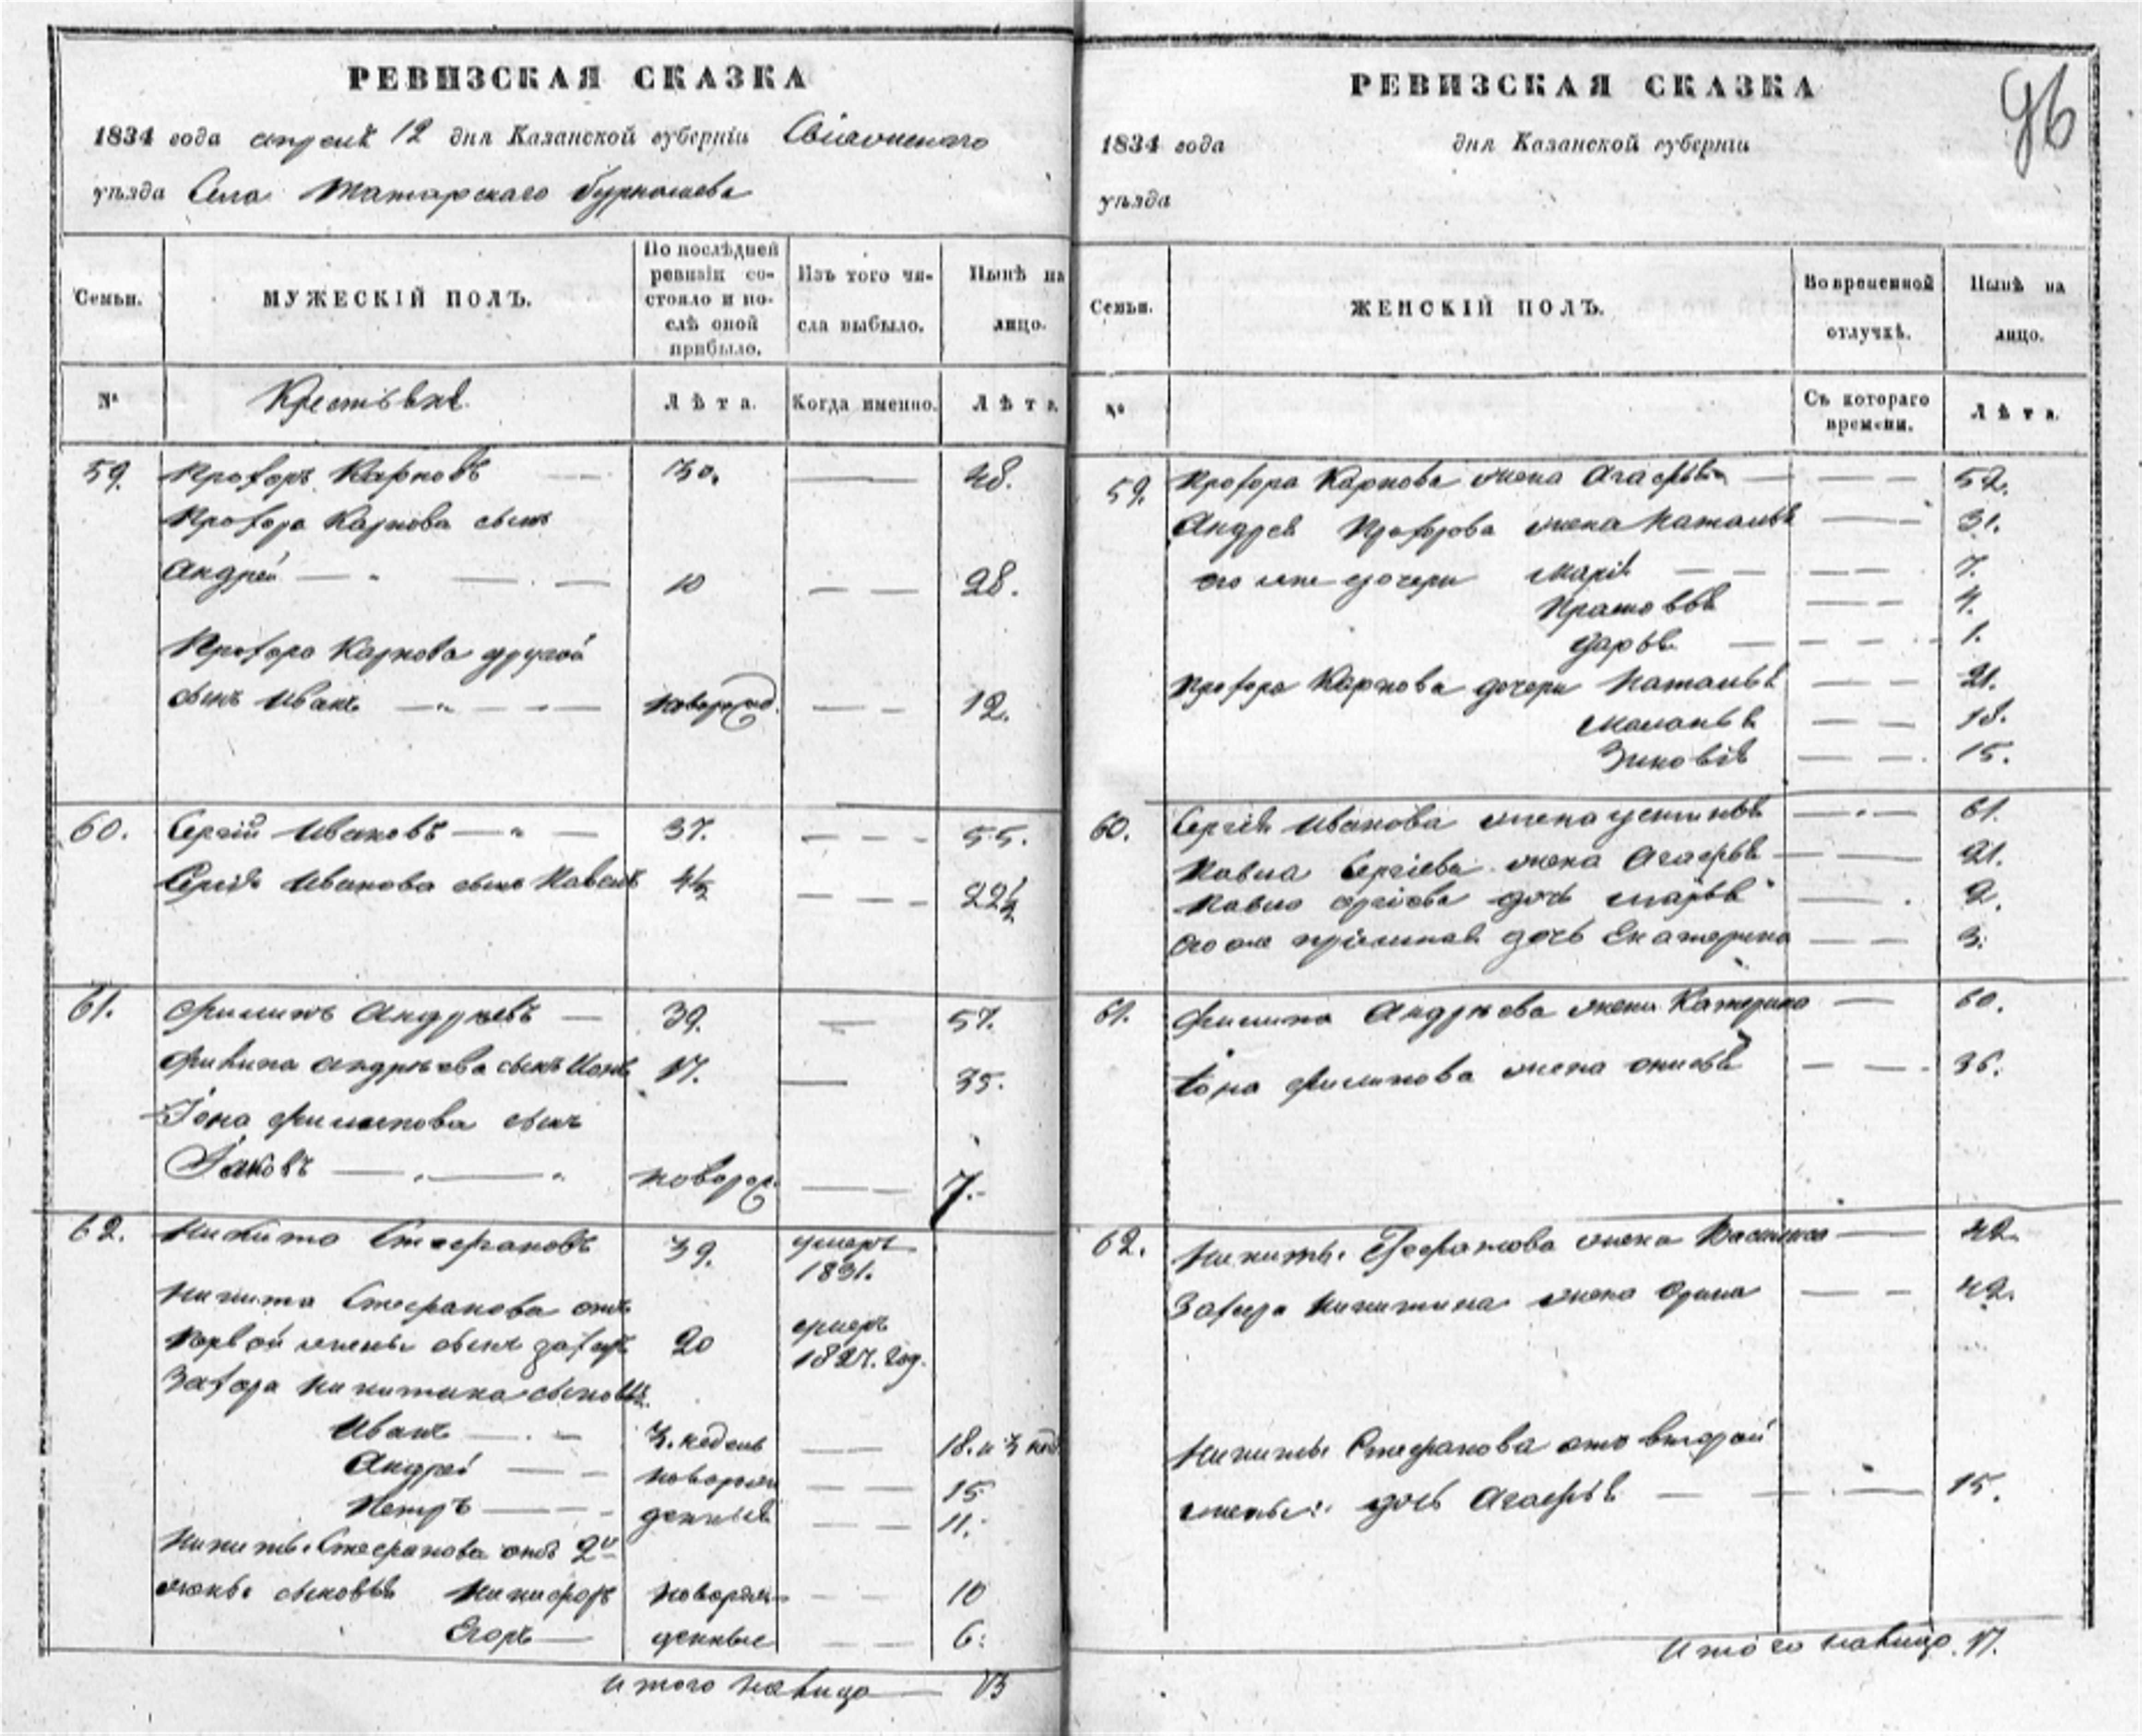 РЕВИЗСКАЯ СКАЗКА
1834 года апреля 12 дня Казанской губерніи Свіяжскаго
уѣзда Села Татарскаго Бурнашева
Семьи.
МУЖЕСКІЙ ПОЛЪ.
По послѣдней ревизіи со-
стояло и по-
слѣ оной
прибыло.
Изъ того чи-
сла выбыло.
Нынѣ на
лицо.
№
Крестьяне
Лѣта.
Когда именно.
Лѣта.
59. Прохоръ Карповъ 30. 48.
Прохора Карпова сынъ
Андрей 10 28.
Прохора Карпова другой
сынъ Иванъ новорожд. 12.
60. Сергій Ивановъ 37. 55.
Сергія Иванова сынъ Павелъ 4½ 22½
61. Филипъ Андреевъ 39. 57.
Филипа Андреева сынъ Іона 17. 35.
Іона Филипова сынъ
Іаковъ новорож. 7.
62. Никита Стефановъ 39. умеръ
1831.
Никита Стефанова отъ
первой жены сынъ Захаръ 20 умеръ
1827. год.
Захара Никитина сыновья
Иванъ 3. недель 18. и 3 нед
Андрей новорож 15
Петръ денныя 11.
Никиты Стефанова отъ 2й
жены сыновья Никифоръ новорож 10
Егоръ денные 6.
Итого налицо 13
РЕВИЗСКАЯ СКАЗКА
96
1834 года дня Казанской губерніи
уѣзда
Семьи.
ЖЕНСКІЙ ПОЛЪ.
Во временной
отлучкѣ.
Нынѣ на
лицо.
№
Съ котораго
времени.
Лѣта.
59. Прохора Карпова жена Агафья 52.
Андрея Прохорова жена Наталья 31.
его же дочери Марія 7.
Прасковья 4.
Дарья 1.
Прохора Карпова дочери Наталья 21.
Маланья 18.
Зиновія 15.
60. Сергія Иванова жена Устинья 61.
Павла Сергіева жена Агафья 21.
Павла Сергіева дочь Марья 2.
его же пріемная дочь Екатерина 3.
61. Филипа Андреева жена Катерина 60.
Іона Филипова жена Анисья 36.
62. Никиты Стефанова жена Василиса 42.
Захара Никитина жена Ирина 42.
Никиты Стефанова отъ второй
жены дочь Агафья 15.
Итого налицо. 17.